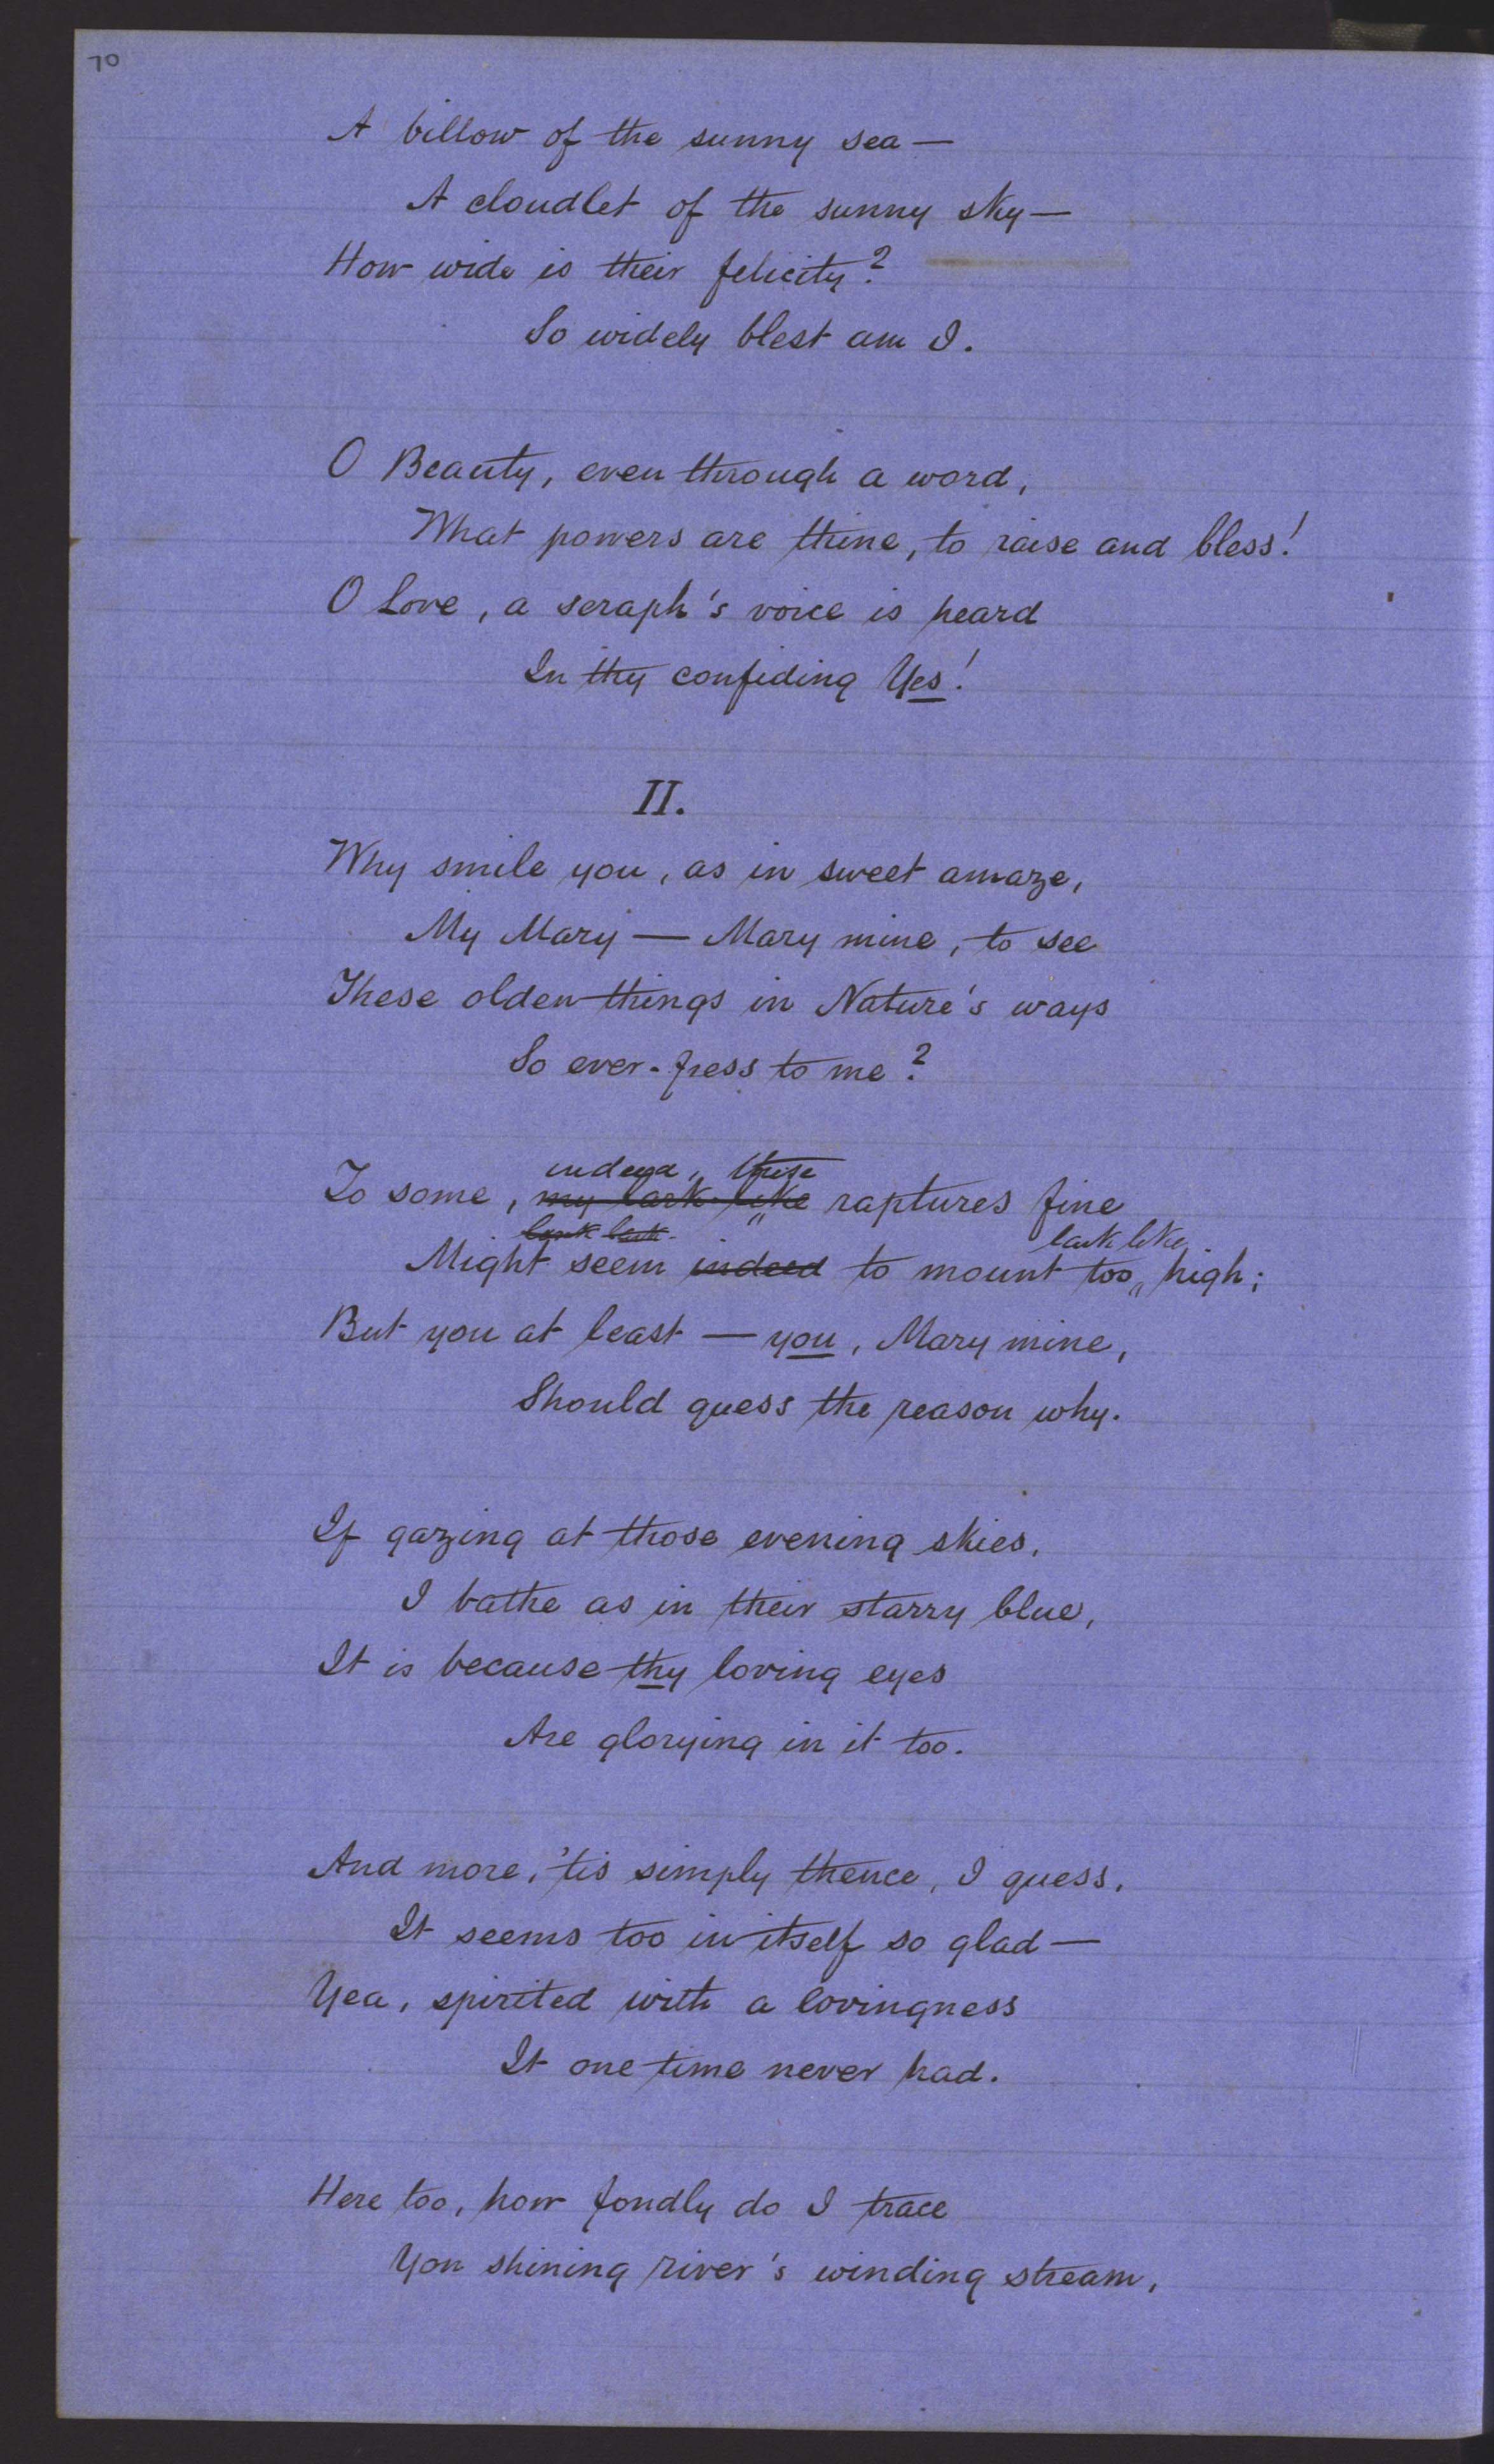 70
A billow of the sunny sea —
A cloudlet of the sunny sky —
How wide is their felicity?
So widely blest am I.
O Beauty, even through a word,
What powers are thine, to raise and bless!
O Love, a seraph's voice is heard
In thy confiding Yes!
II.
Why smile you, as in sweet amaze,
My Mary — Mary mine, to see
These olden things in Nature's ways
So ever-fress to me?
indeed, these
To some, my lark-like raptures fine
lark like
Might seem indeed to mount too high;
But you at least — you, Mary mine,
Should guess the reason why.
If gazing at those evening skies,
I bathe as in their starry blue,
It is because thy loving eyes
Are glorying in it too.
And more, 'tis simply thence, I guess,
It seems too in itself so glad —
Yea, spirited with a lovingness
It one time never had.
Here too, how fondly do I trace
Yon shining river's winding stream,